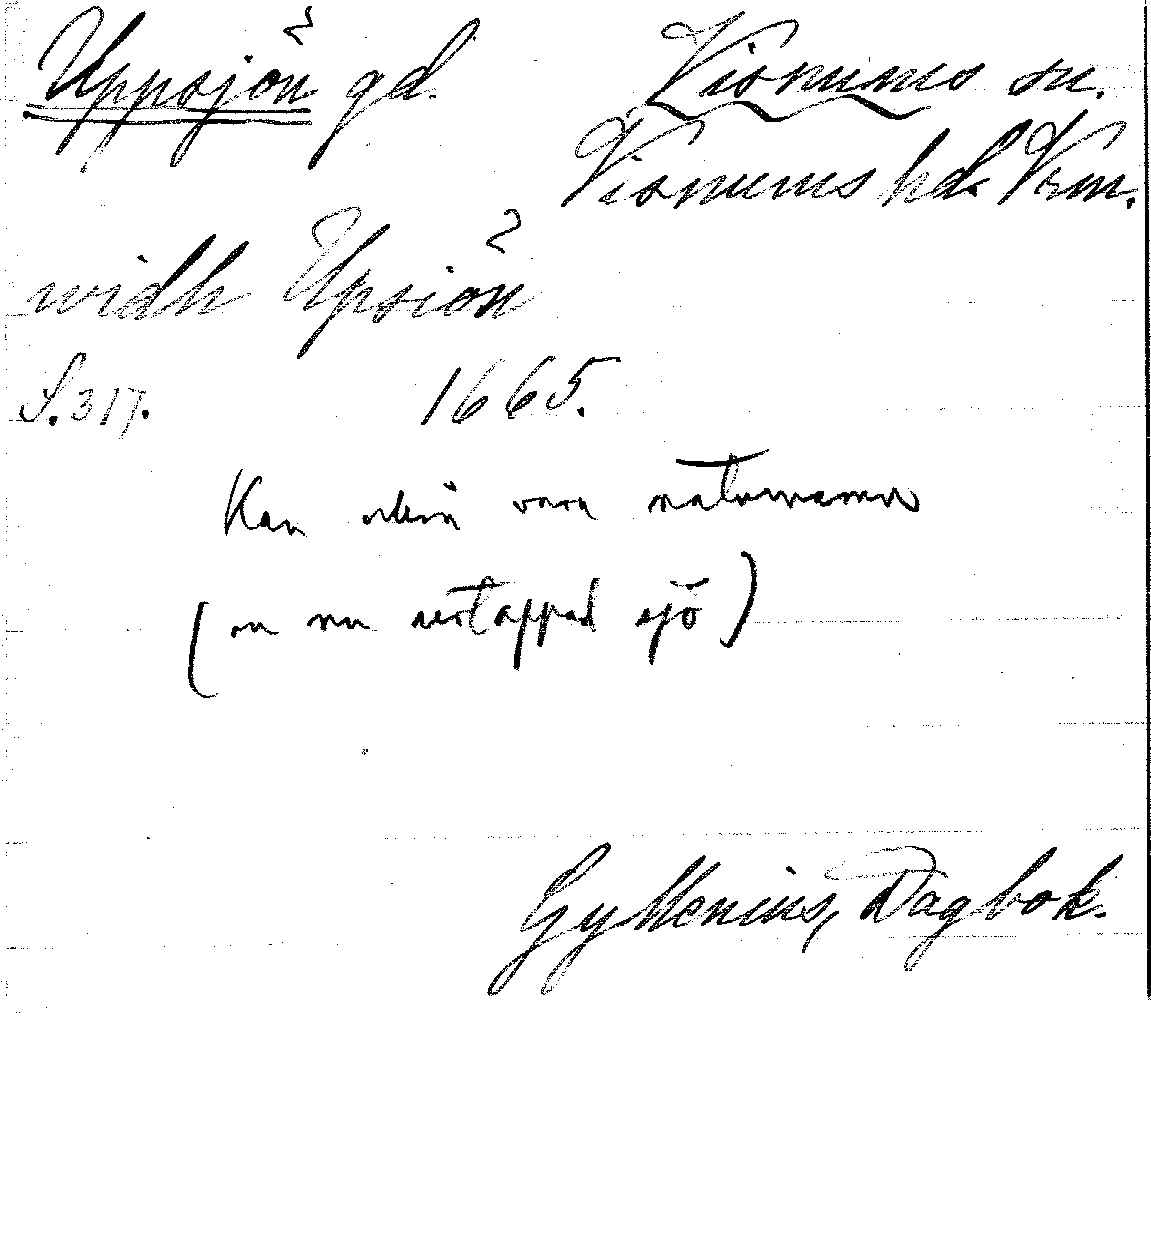 Uppsjön gd. Visnums sn.
Visnums hd. Vrm.
widh Upsiön
S. 317. 1665.
Kan även vara naturnamn
(en nu avtappad sjö)
Gyllenius, Dagbok.